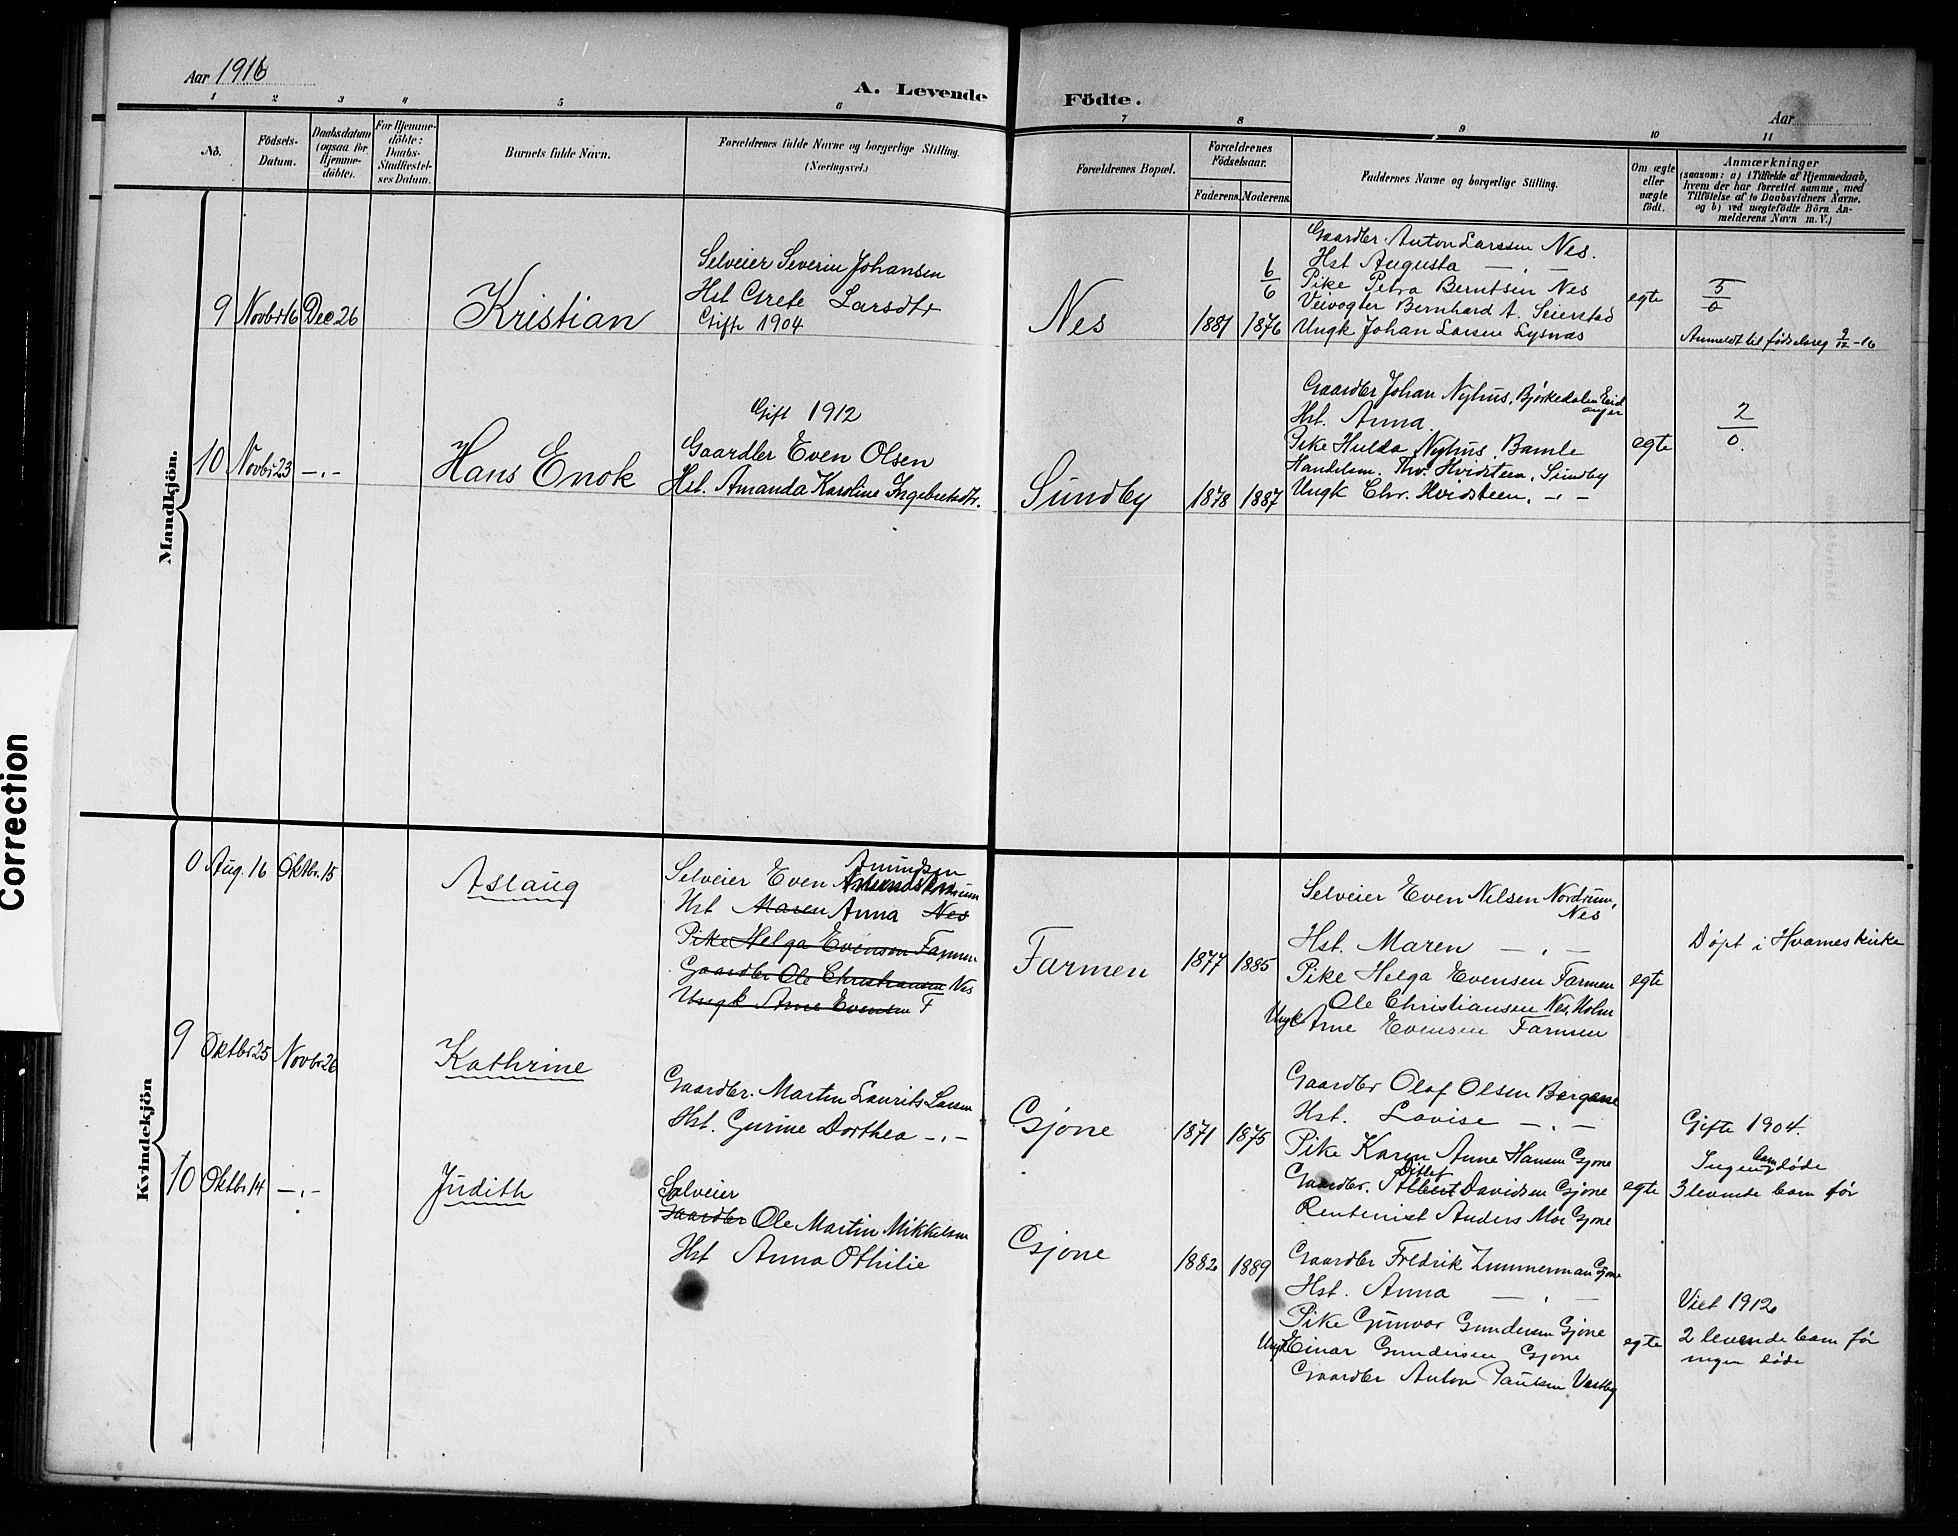 Aar 1916
A. Levende Födte.
Aar
1 2 3 4 5 6 7 8 9 10 11
No.
Födsels-
Datum.
Daabsdatum
(ogsaa for
Hjemme-
döbte).
For Hjemme-
döbte:
Daabs-
Stadfæstel-
ses Datum.
Barnets fulde Navn.
Forældrenes fulde Navne og borgerlige Stilling.
(Næringsvei.)
Forældrenes Bopæl.
Forældrenes
Födselsaar.
Faderens. Moderens.
Faddernes Navne og borgerlige Stilling.
Om ægte
eller
uægte
födt.
Anmærkninger
(saasom: a) i Tilfælde af Hjemmedaab,
hvem der har forrettet samme, med
Tilföielse af to Daabsvidners Navne,
og b) ved uægtefödte Börn An-
melderens Navn m. V.)
Mandkjön.
9 Novbr 16 Dec 26
Kristian
Selveier Severin Johansen
Hst Grete Larsdtr
Gift 1904
Nes
1881
6/6
1876
Gaardbr. Anton Larssen Nes.
Hst Augusta — „ —
Pike Petra Berntsen Nes
Veivogter Bernhard A. Seierstad
Ungk Johan Larsen Lysnæs
egte
5/0
Anmeldt til fødselsreg 9/12-16
10 Novbr 23 —„—
Hans Enok
Gift 1912
Gaardbr Even Olsen
Hst. Amanda Karoline Ingebretsdtr.
Sundby
1878 1887
Gaardbr Johan Nyhus, Bjørkedalen Eid
anger
Hst. Anna.
Pike Hulda Nyhus, Bamle
Handelsm. Thv. Hvidsteen, Sundby
Ungk Chr. Hvidsteen, —„—
egte
2/0
Kvindekjön
0 Aug. 16 Oktbr. 15
Aslaug
Amundsen
Selveier Even
Hst Maren Anna Nes
Pike Helga Evensen Farmen
Gaardbr Ole Christiansen Nes
Ungk Arne Evensen F
Farmen
1877 1885
Selveier Even Nilsen Nordrum,
Nes
Hst. Maren — „ —
Pike Helga Evensen Farmen
Ole Christiansen Nes, Holm
Ungk Arne Evensen Farmen
egte
Døpt i Hvarneskirke
9 Oktbr 25 Novbr 26
Kathrine
Gaardbr. Martin Laurits Larsen
Hst. Gurine Dorthea —„—
Gjone
1871 1875
Gaardbr Olaf Olsen Bergene
Hst. Lovise — „ —
Pike Karen Anne Hansen Gjone
Ditlef
Gaardbr. Albert Davidsen Gjone
Rentenist Anders Moe Gjone
egte
Gifte 1904.
Ingen barn døde
3 levende barn før
10 Oktbr 14 —„—
Judith
Selveier
Gaardbr Ole Martin Mikkelsen
Hst Anna Othilie
Gjone
1882 1889
Gaardbr Fredrik Zimmerman Gjone
Hst. Anna — „ —
Pike Gunvor Gundersen Gjone
Ungk Einar Gundersen Gjone
Gaardbr Anton Paulsen Vestby
egte
Viet 1912
2 levende barn før
ingen døde
Correction